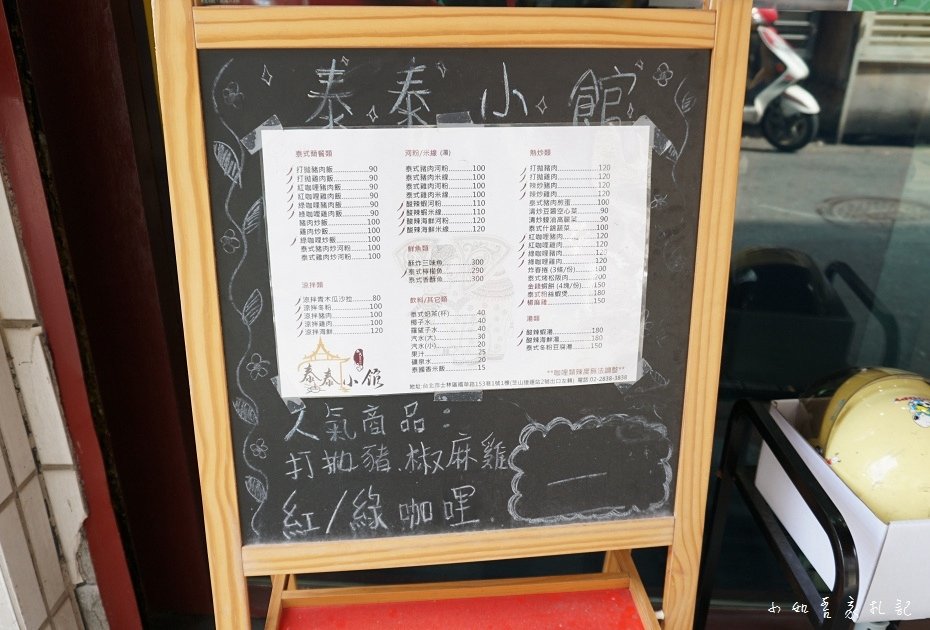 泰泰小館
泰式簡餐類
打拋豬肉飯............90
打拋雞肉飯............90
紅咖哩豬肉飯.........90
紅咖哩雞肉飯.........90
綠咖哩豬肉飯.........90
綠咖哩雞肉飯.........90
豬肉炒飯............100
雞肉炒飯............100
綠咖哩炒飯.........100
泰式豬肉炒河粉......100
泰式雞肉炒河粉......100
涼拌類
涼拌青木瓜沙拉......80
涼拌冬粉............100
涼拌豬肉............100
涼拌雞肉............100
涼拌海鮮............120
河粉/米線 (湯)
泰式豬肉河粉.........100
泰式豬肉米線.........100
泰式雞肉河粉.........100
泰式雞肉米線.........100
酸辣蝦河粉............110
酸辣蝦米線............110
酸辣海鮮河粉.........120
酸辣海鮮米線.........120
鮮魚類
酥炸三味魚............300
泰式檸檬魚............290
泰式香酥魚............300
飲料/其它類
泰式奶茶(杯).........40
椰子水..................40
羅望子水...............40
汽水(大)...............30
汽水(小)...............20
果汁.....................25
礦泉水..................20
泰國香米飯............15
熱炒類
打拋豬肉...............120
打拋雞肉...............120
辣炒豬肉...............120
辣炒雞肉...............120
泰式豬肉煎蛋.........100
清炒豆醬空心菜......90
清炒蠔油高麗菜......90
泰式什錦蔬菜.........100
紅咖哩豬肉............120
紅咖哩雞肉............120
綠咖哩豬肉............120
綠咖哩雞肉............120
炸春捲 (3條/份)
泰式烤松阪肉.........200
金錢蝦餅 (4塊/份)......150
泰式粉絲蝦煲.........180
椒麻雞..................150
湯類
酸辣蝦湯...............180
酸辣海鮮湯............180
泰式冬粉豆腐湯......150
**咖哩類辣度無法調整**
泰泰小館
地址:台北市士林區福華路153巷1號1樓(芝山捷運站2號出口左轉) 電話:02-2838-3838
人氣商品:
打拋豬.椒麻雞
紅/綠咖哩.
小如吾家札記